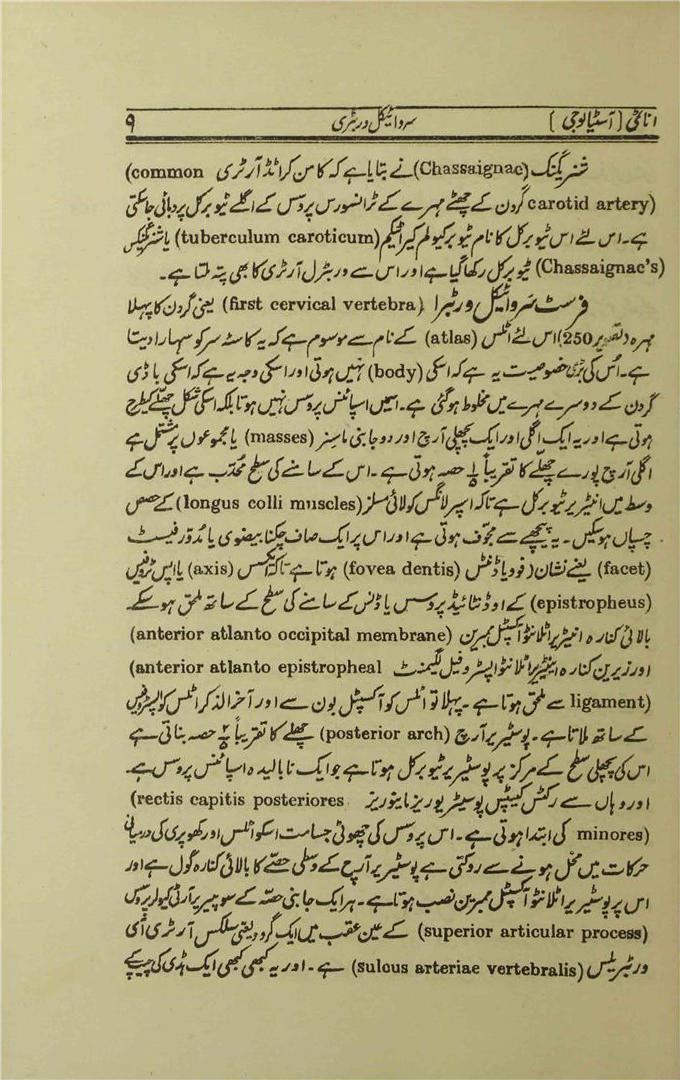 اناٹمی (آسٹیالوجی) سروائیکل ورٹبری ۹
شسریگنک (Chassaignac) نے بتایا ہے کہ کامن کراٹڈ آرٹری (common
carotid artery) گردن کے چھٹے مہرے کے ٹرانسورس پروسس کے اگلے ٹیوبرکل پر دبائی جاسکتی
ہے۔ اس لئے اس ٹیوبرکل کا نام ٹیوبرکیولم کیراٹیکم (tuberculum caroticum) یا
(Chassaignac's) ٹیوبرکل رکھا گیا ہے اور اس سے ورٹبرل آرٹری کا بھی پتہ ملتا ہے۔
فرسٹ سروائیکل ورٹبرا (first cervical vertebra) یعنی گردن کا پہلا
مہرہ (تصویر 250) اس لئے اٹلس (atlas) کے نام سے موسوم ہے کہ یہ کاسئہ سر کو سہارا دیتا
ہے۔ اُس کی بڑی خصوصیت یہ ہے کہ اسکی (body) نہیں ہوتی اور اسکی وجہ یہ ہے کہ اسکی باڈی
گردن کے دوسرے مہرے میں مخلوط ہوگئی ہے۔ اسمیں اسپائنس پروسس نہیں ہوتا بلکہ اسکی شکل چھلے کیطرح
ہوتی ہے اور یہ ایک اگلی اور ایک پچھلی آرچ اور دو جانبی ماسِنر (masses) یا مجموعوں پر مشتمل ہے
اگلی آرچ پورے چھلّے کا تقریباً حصہ ہوتی ہے۔ اس کے سامنے کی سطح محدّب ہے اور اس کے
وسط میں انٹیریر ٹیوبرکل ہے تاکہ اسپر لانگس کولائی مسلز (longus colli muscles) کے حصص
چسپاں ہوسکیں۔ یہ پیچھے سے مجوّف ہوتی ہے اور اس پر ایک صاف چکنا بیضوی یا مُدوّر فیسٹ
(facet) یعنے نشان (فوویا ڈنٹس (fovea dentis) ہوتا ہے تاکہ اکسس (axis) یا اپس ٹروفیس
(epistropheus) کے اوڈنٹائیڈ پروسس یا ڈنس کے سامنے کی سطح کے ساتھ ملحق ہوسکے۔
بالائی کنارہ انٹیریر اٹلانٹو آکسپٹل ممبرین (anterior atlanto occipital membrane)
اور زیرین کنارہ انٹیریر اٹلانٹو اپسٹروفیل لگیمنٹ (anterior atlanto epistropheal
ligament) سے ملحق ہوتا ہے۔ پہلا تو اٹلس کو آکسپٹل بون سے اور آخر الذکر اٹلس کو اپسٹروفیس
کے ساتھ ملاتا ہے۔ پوسٹیریر آرچ (posterior arch) چھلے کا تقریباً حصہ بناتی ہے
اس کی پچھلی سطح کے مرکز پر پوسٹیریر ٹیوبرکل ہوتا ہے جو ایک نابالیدہ اسپائنس پروسس ہے۔
اور وہاں سے رکٹس کیپٹس پوسٹیریوریز مائنوریز (rectis capitis posteriores
minores) کی ابتدا ہوتی ہے۔ اس پروسس کی چھوٹی جسامت اسکو اٹلس اور کھوپری کی درمیانی
حرکات میں مخل ہونے سے روکتی ہے پوسٹیریر آرچ کے وسطی حصّے کا بالائی کنارہ گول ہے اور
اس پر پوسٹیریر اٹلانٹو آکسپٹل ممبرین نصب ہوتا ہے۔ ہر ایک جانبی حصّہ کے سوپیریر آرٹیکیولر پروسس
(superior articular process) کے عین عقب میں ایک گروو یعنی سلکس آرٹری اَئی
ورٹبریلس (sulous arteriae vertebralis) ہے۔ اور یہ کبھی کبھی ایک ہڈی کی